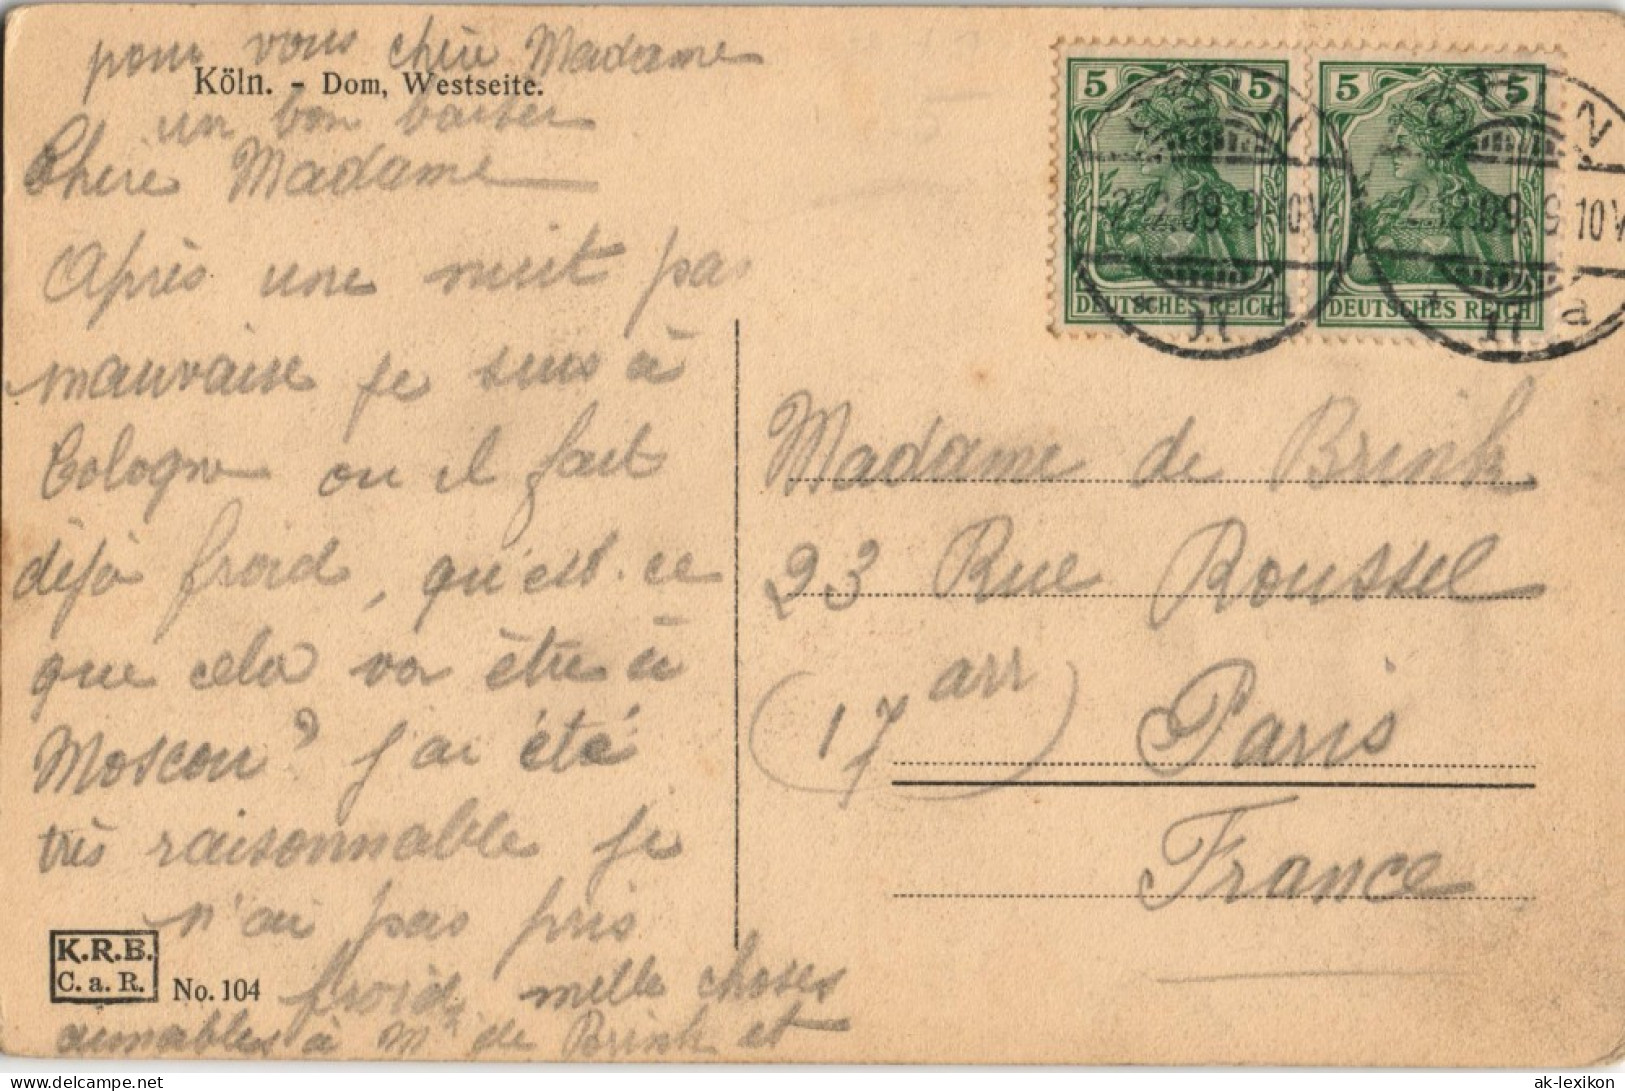 pour vous chère Madame
Köln. - Dom, Westseite.
un bon baiser
Chère Madame
Après une nuit pas
mauvaise je suis à
Cologne ou il fait
déjà froid, qu'est-ce
que cela va être à
Moscou? j'ai été
très raisonnable je
n'ai pas pris
froid, mille choses
aimables à Mr de Brink et
K.R.B.
C.a.R.
No. 104
5 5
DEUTSCHES REICH
5 5
DEUTSCHES REICH
CÖLN
9-10V
CÖLN
2.12.09. 9-10V
* 11 a
Madame de Brink
23 Rue Roussel
(17 arr) Paris
France
Delcampe.net
ak-lexikon